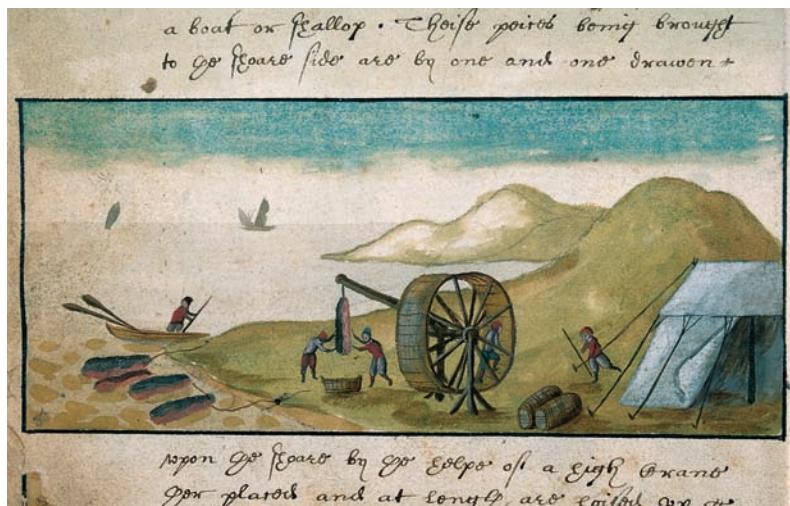 a boat or shallop. Theise peices being brought
to the shoare side are by one and one drawen
upon the shoare by the helpe of a high Crane
ther placed and at length are hoised up